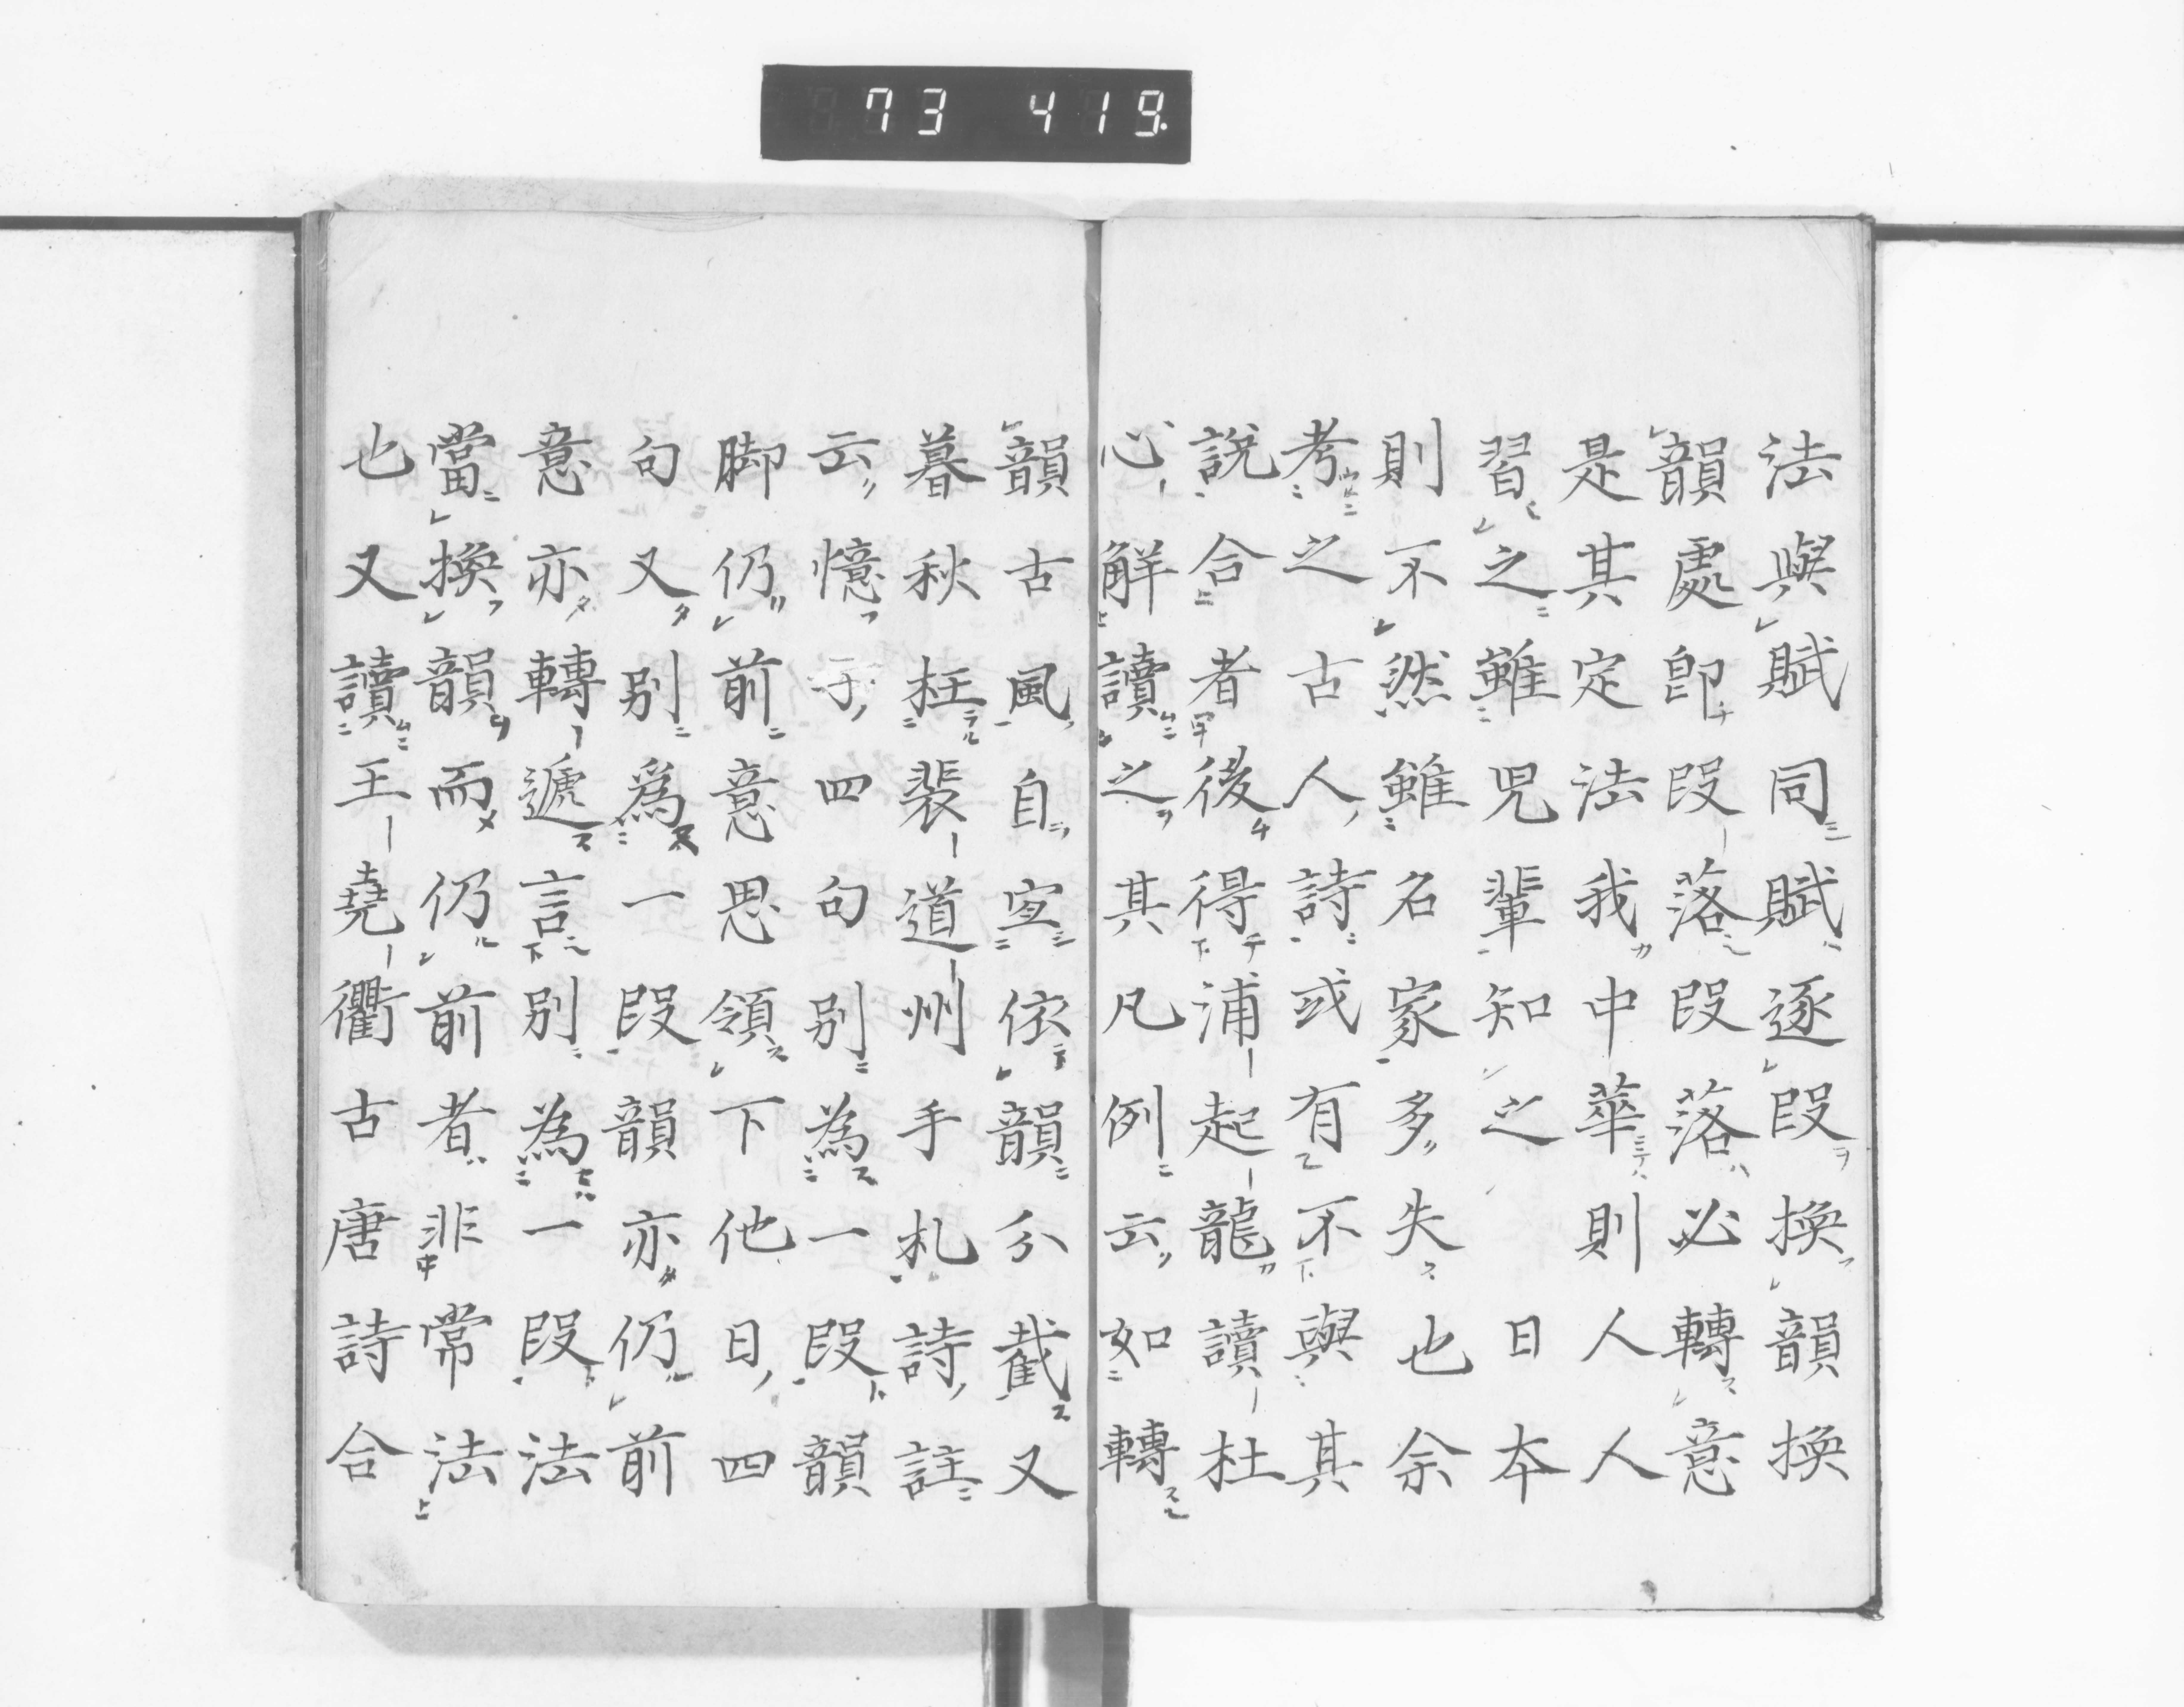 73 419.
法與賦同賦逐段換韻換
韻處卽段落段落必轉意
是其定法我中華則人人
習之雖児輩知之 日本
則不然雖名家多失也余
考之古人詩或有不與其
說合者後得浦起龍讀杜
心解讀之其凡例云如轉
韻古風自宜依韻分截又
暮秋枉裴道州手札詩註
云憶子四句別為一段韻
脚仍前意思領下他日四
句又別爲一段韻亦仍前
意亦轉遞言別為一段法
當換韻而仍前者非常法
也又讀王堯衢古唐詩合